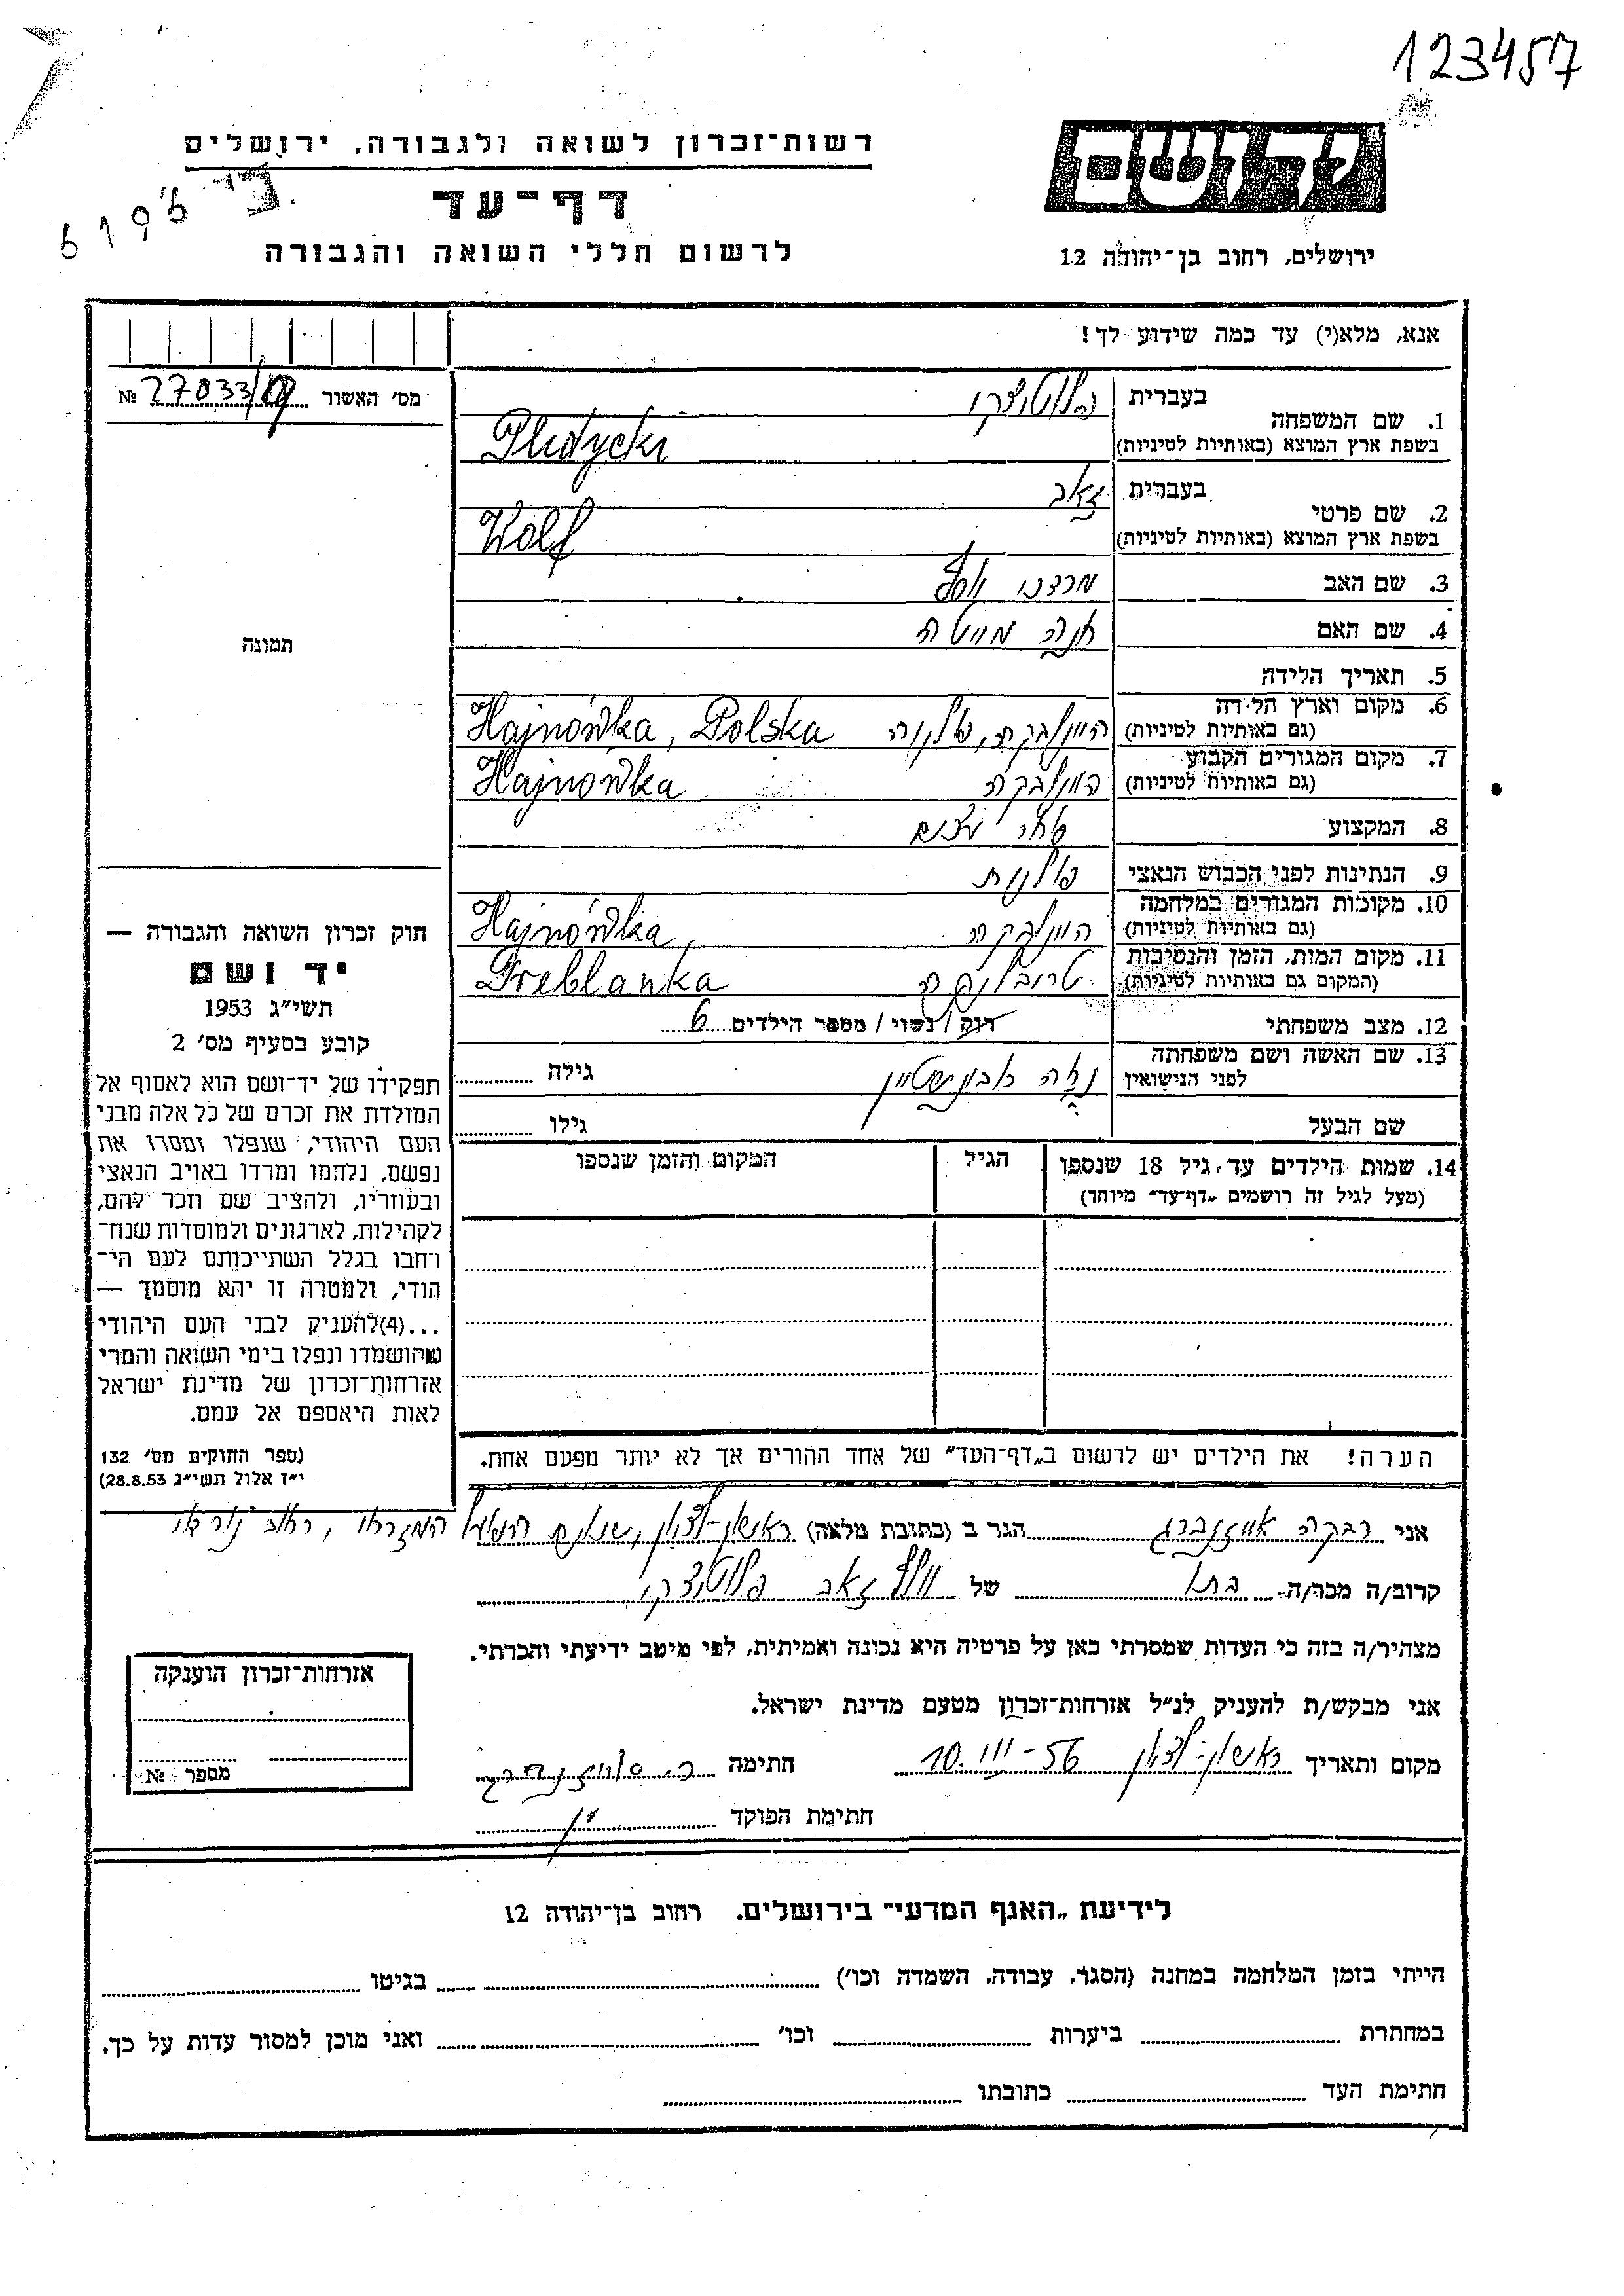 123457
רשות־זכרון לשואה ולגבורה, ירושלים
דף־עד
לרשום חללי השואה והגבורה
יד ושם
ירושלים, רחוב בן־יהודה 12
6196
אנא, מלא(י) עד כמה שידוע לך!
מס׳ האשור № 27033/
1. שם המשפחה
בעברית פלוטיצקי
בשפת ארץ המוצא (באותיות לטיניות) Plutycki
2. שם פרטי
בעברית זאב
בשפת ארץ המוצא (באותיות לטיניות) Wolf
3. שם האב מרדכי יוסף
4. שם האם חנה
5. תאריך הלידה
6. מקום וארץ הלידה
(גם באותיות לטיניות) היינובקה, פולניה Hajnówka, Polska
7. מקום המגורים הקבוע
(גם באותיות לטיניות) היינובקה Hajnówka
8. המקצוע סוחר עצים
9. הנתינות לפני הכבוש הנאצי פולנית
10. מקומות המגורים במלחמה
(גם באותיות לטיניות) היינובקה Hajnówka,
11. מקום המות, הזמן והנסיבות
(המקום גם באותיות לטיניות) טרובלינקה Treblanka
12. מצב משפחתי רוק / נשוי / מספר הילדים 6
13. שם האשה ושם משפחתה
לפני הנישואין גילה
שם הבעל גילו
14. שמות הילדים עד גיל 18 שנספו
(מעל לגיל זה רושמים „דף־עד״ מיוחד)
הגיל
המקום והזמן שנספו
הערה! את הילדים יש לרשום ב„דף־העד״ של אחד ההורים אך לא יותר מפעם אחת.
תמונה
חוק זכרון השואה והגבורה —
יד ושם
תשי״ג 1953
קובע בסעיף מס׳ 2
תפקידו של יד־ושם הוא לאסוף אל
המולדת את זכרם של כל אלה מבני
העם היהודי, שנפלו ומסרו את
נפשם, נלחמו ומרדו באויב הנאצי
ובעוזריו, ולהציב שם וזכר להם,
לקהילות, לארגונים ולמוסדות שנח־
רחבו בגלל השתייכותם לעם הי־
הודי, ולמטרה זו יהא מוסמך —
...(4) להעניק לבני העם היהודי
שהושמדו ונפלו בימי השואה והמרי
אזרחות־זכרון של מדינת ישראל
לאות היאספם אל עמם.
(ספר החוקים מס׳ 132
י״ז אלול תשי״ג 28.8.53)
אני רבקה אייזנברג הגר ב (כתובת מלאה) ראשון־לציון, שכונת הפועל המזרחי, רחוב
קרוב/ה מכר/ה בתו של וולף זאב פלוטיצקי
מצהיר/ה בזה כי העדות שמסרתי כאן על פרטיה היא נכונה ואמיתית, לפי מיטב ידיעתי והכרתי.
אני מבקש/ת להעניק לנ״ל אזרחות־זכרון מטעם מדינת ישראל.
מקום ותאריך ראשון־לציון 10.III-56 חתימה ר. אייזנברג
חתימת הפוקד
אזרחות־זכרון הוענקה
מספר №
לידיעת „האגף המדעי״ בירושלים. רחוב בן־יהודה 12
הייתי בזמן המלחמה במחנה (הסגר, עבודה, השמדה וכו׳) בגיטו
במחתרת ביערות וכו׳ ואני מוכן למסור עדות על כך.
חתימת העד כתובתו